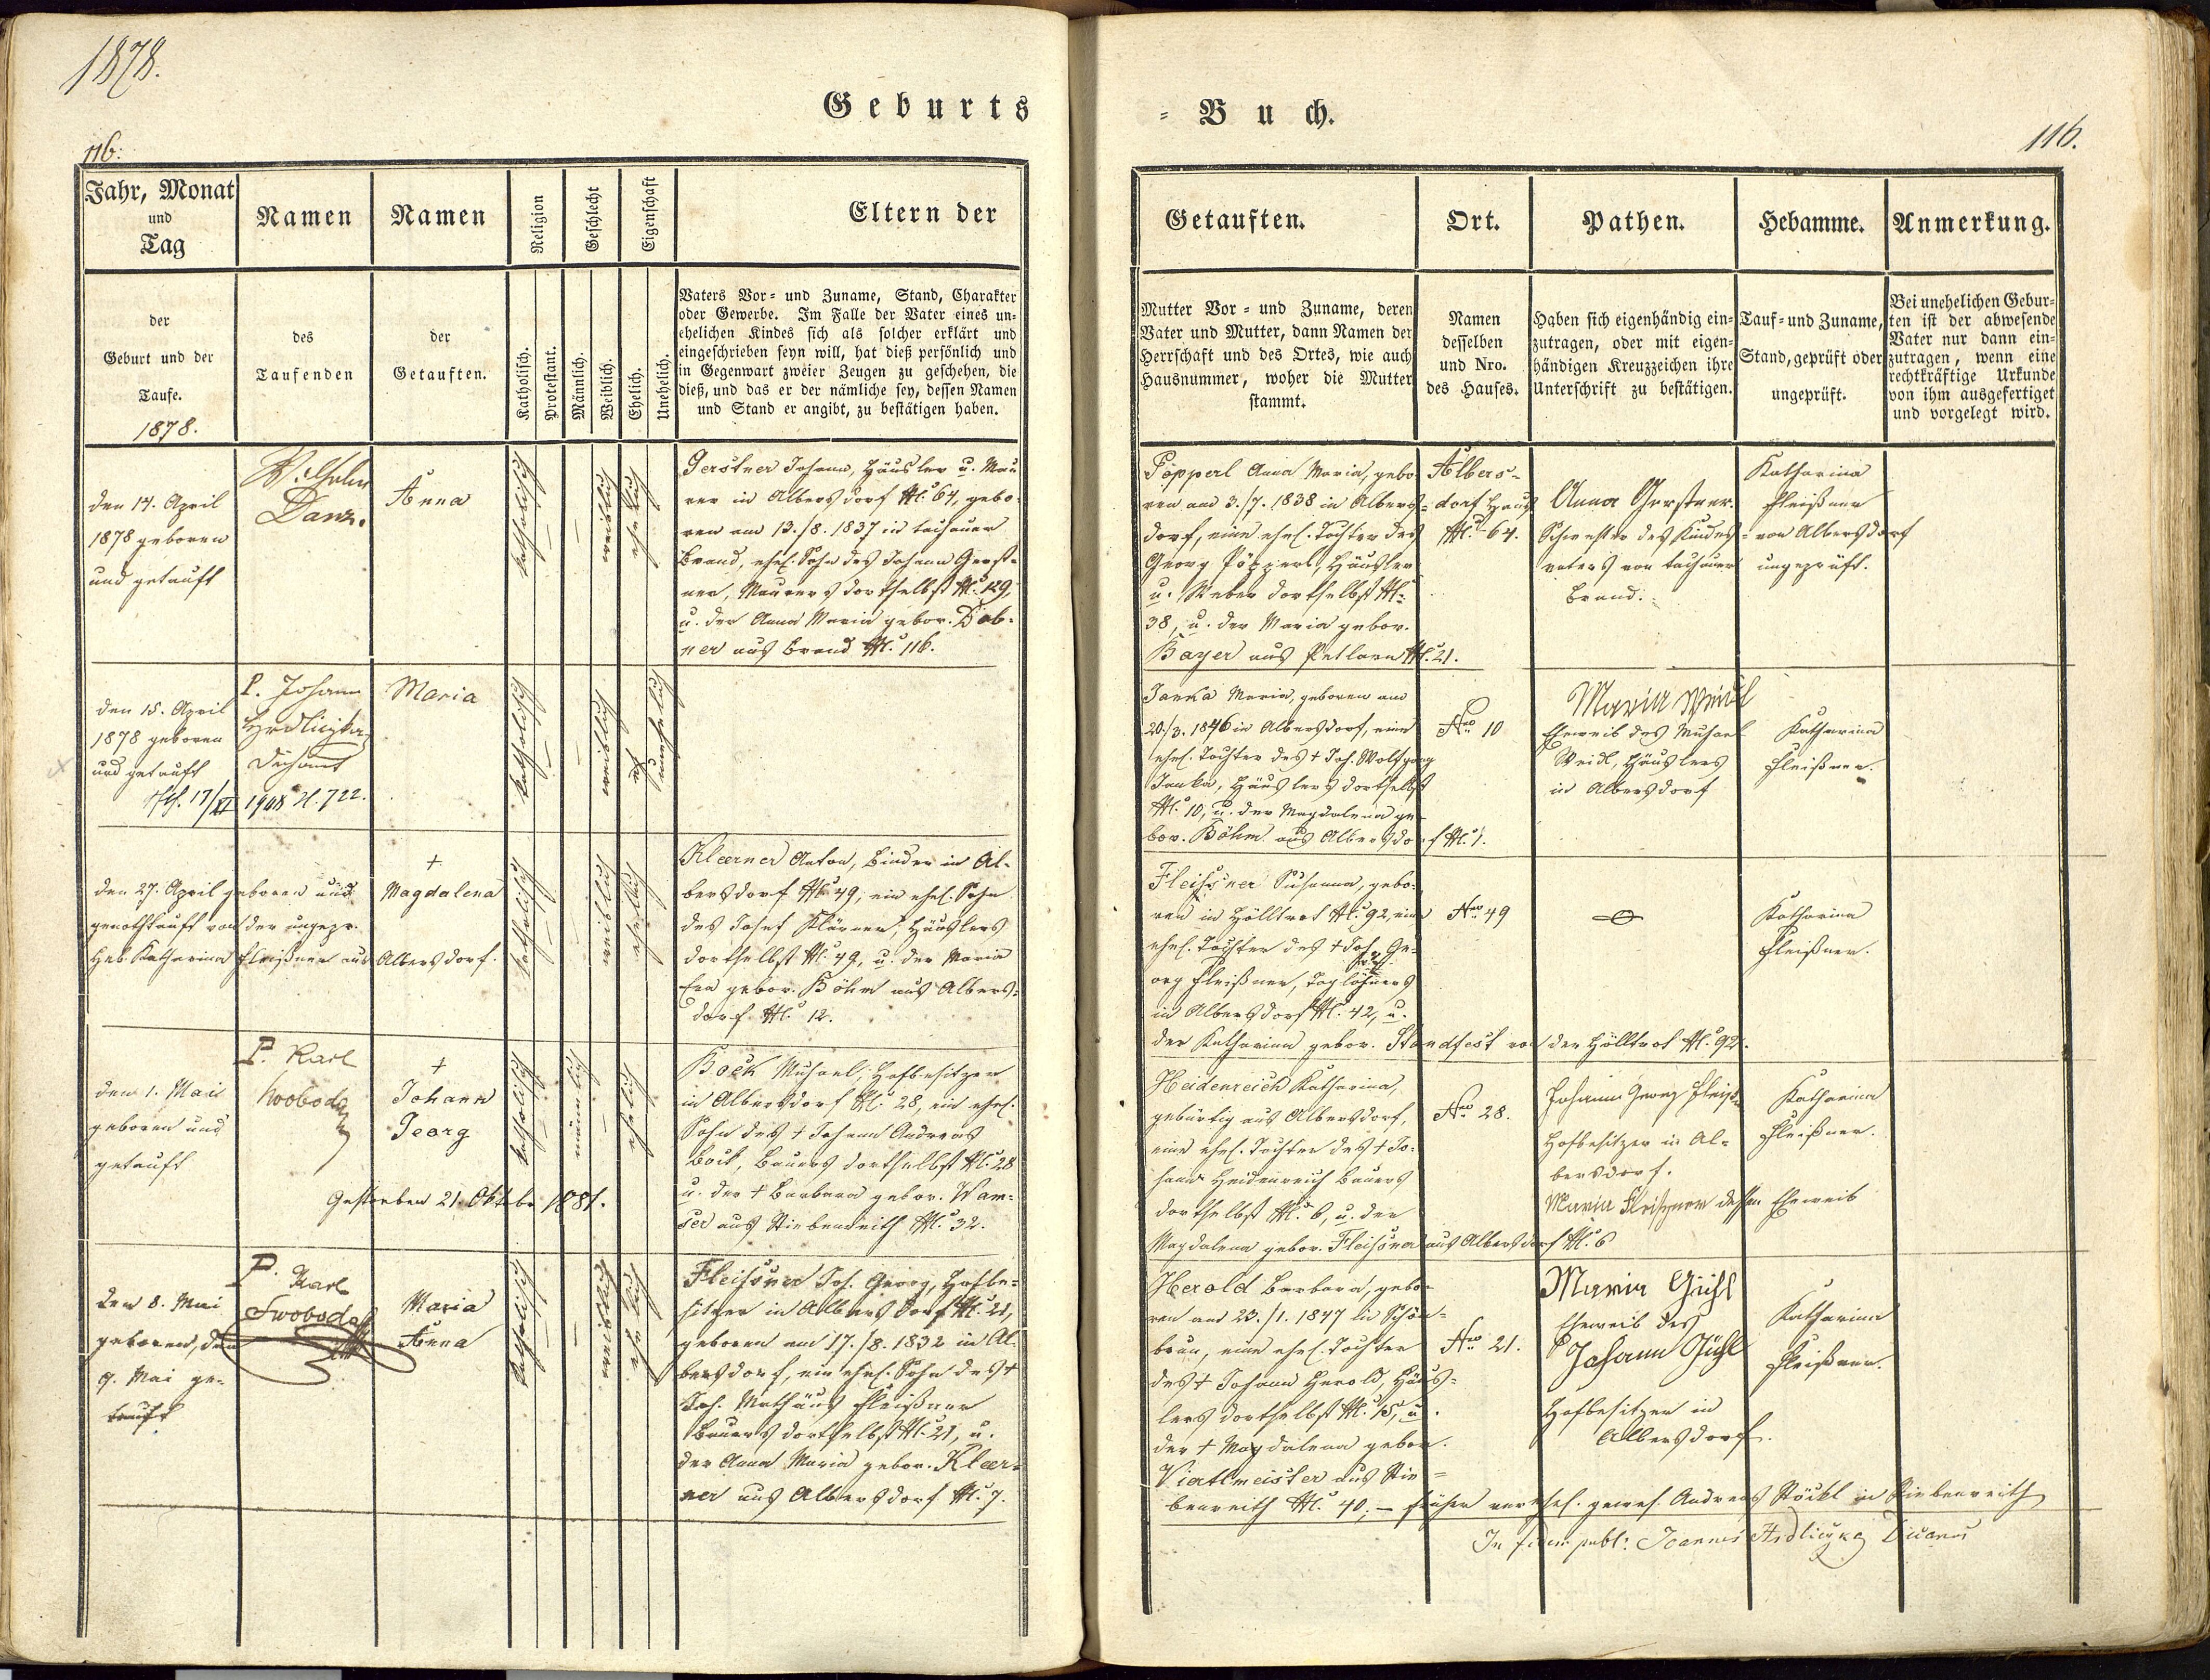 1878.
Geburts
116.
Jahr, Monat
und
Tag
Namen
Namen
Religion
Geschlecht
Eigenschaft
Eltern der
der
Geburt und der
Taufe.
1878.
des
Taufenden
der
Getauften.
Katholisch.
Protestant.
Männlich.
Weiblich.
Ehelich.
Unehelich.
Vaters Vor- und Zuname, Stand, Charakter
oder Gewerbe. Im Falle der Vater eines un-
ehelichen Kindes sich als solcher erklärt und
eingeschrieben seyn will, hat dieß persönlich und
in Gegenwart zweier Zeugen zu geschehen, die
dieß, und das er der nämliche sey, dessen Namen
und Stand er angibt, zu bestätigen haben.
den 14. April
1878 geboren
und getauft
Danz.
Anna
katholisch
weiblich
ehelich
Gerstner Johann, Häusler u. Mau-
rer in Albersdorf N. 64, gebo-
ren am 13./8. 1837 in tachauer
Brand, ehel. Sohn des Johann Gerst-
ner, Maurers dortselbst N. 129,
u. der Anna Maria gebor. Dob-
ner aus Brand N. 116.
den 15. April
1878 geboren
und getauft
17/XI 1908 Z. 722.
P. Johann
Hrdliczka
Dechant
Maria
katholisch
weiblich
unehelich
den 27. April geboren und
genothtauft von der ungepr.
Heb. Katharina Fleißner aus Albersdorf.
+
Magdalena
katholisch
weiblich
ehelich
Klaerner Anton, Binder in Al-
bersdorf N. 49, ein ehel. Sohn
des Josef Klärner, Häuslers
dortselbst N. 49, u. der Maria
Eva gebor. Böhm aus Albers-
dorf N. 12.
den 1. Mai
geboren und
getauft
P. Karl
Swoboda
+
Johann
Georg
katholisch
männlich
ehelich
Gestorben 21. Oktober 1881.
Bock Michael, Hofbesitzer
in Albersdorf N. 28, ein ehel.
Sohn des + Johann Andreas
Bock, Bauers dortselbst N. 28
u. der + Barbara gebor. Wam-
ser aus Stiebenreith N. 32.
den 8. Mai
geboren, den
9. Mai ge-
tauft
P. Karl
Swoboda
Maria
Anna
katholisch
weiblich
ehelich
Fleissner Joh. Georg, Hofbe-
sitzer in Albersdorf N. 21,
geboren am 17./8. 1832 in Al-
bersdorf, ein ehel. Sohn des +
Joh. Mathäus Fleißner
Bauers dortselbst N. 21, u.
der Anna Maria gebor. Klaer-
ner aus Albersdorf N. 7.
= Buch.
116.
Getauften.
Ort.
Pathen.
Hebamme.
Anmerkung.
Mutter Vor- und Zuname, deren
Vater und Mutter, dann Namen der
Herrschaft und des Ortes, wie auch
Hausnummer, woher die Mutter
stammt.
Namen
desselben
und Nro.
des Hauses.
Haben sich eigenhändig ein-
zutragen, oder mit eigen-
händigen Kreuzzeichen ihre
Unterschrift zu bestätigen.
Tauf- und Zuname,
Stand, geprüft oder
ungeprüft.
Bei unehelichen Gebur-
ten ist der abwesende
Vater nur dann ein-
zutragen, wenn eine
rechtkräftige Urkunde
von ihm ausgefertiget
und vorgelegt wird.
Pöpperl Anna Maria, gebo-
ren am 3./7. 1838 in Albers-
dorf, eine ehel. Tochter des
Georg Pöpperl, Häusler
u. Weber dortselbst N.
38, u. der Maria gebor.
Bayer aus Petlarn N. 21.
Albers-
dorf Haus
N. 64.
Anna Gerstner.
Schwester des Kindes-
vaters von tachauer
Brand.
Katharina
Fleißner
von Albersdorf
ungeprüft.
Janka Maria, geboren am
20./3. 1846 in Albersdorf, eine
ehel. Tochter des + Joh. Wolfgang
Janka, Häuslers dortselbst
N. 10, u. der Magdalena ge-
bor. Böhm aus Albersdorf N. 1.
Nro 10
Maria Weidl
Eheweib des Michael
Weidl, Häuslers
in Albersdorf
Katharina
Fleißner.
Fleissner Susanna, gebo-
ren in Hölltrat N. 92, eine
ehel. Tochter des + Joh. Ge-
org Fleißner, Taglöhners
in Albersdorf N. 42, u.
der Katharina gebor. Standfest von der Hölltrat N. 92.
Nro 49
Katharina
Fleißner.
Heidenreich Katharina,
gebürtig aus Albersdorf,
eine ehel. Tochter des + Jo-
hann Heidenreich Bauers
dortselbst N. 6, u. der
Magdalena gebor. Fleissner aus Albersdorf N. 6
Nro 28.
Johann Georg Fleißner
Hofbesitzer in Al-
bersdorf.
Maria Fleißner dessen Eheweib
Katharina
Fleißner.
Herold Barbara, gebo-
ren am 23./1. 1847 in Schön-
brun, eine ehel. Tochter
des + Johann Herold, Häus-
lers dortselbst N. 15, u.
der + Magdalena gebor.
Viertlmeister aus Stie-
benreith N. 40; – früher verehel. gewes. Andreas Stöckl in Stiebenreith
Nro 21.
Maria Gühl
Eheweib des
Johann Gühl
Hofbesitzer in
Albersdorf.
Katharina
Fleißner.
In fidem publ: Joannes Hrdliczka Decanus